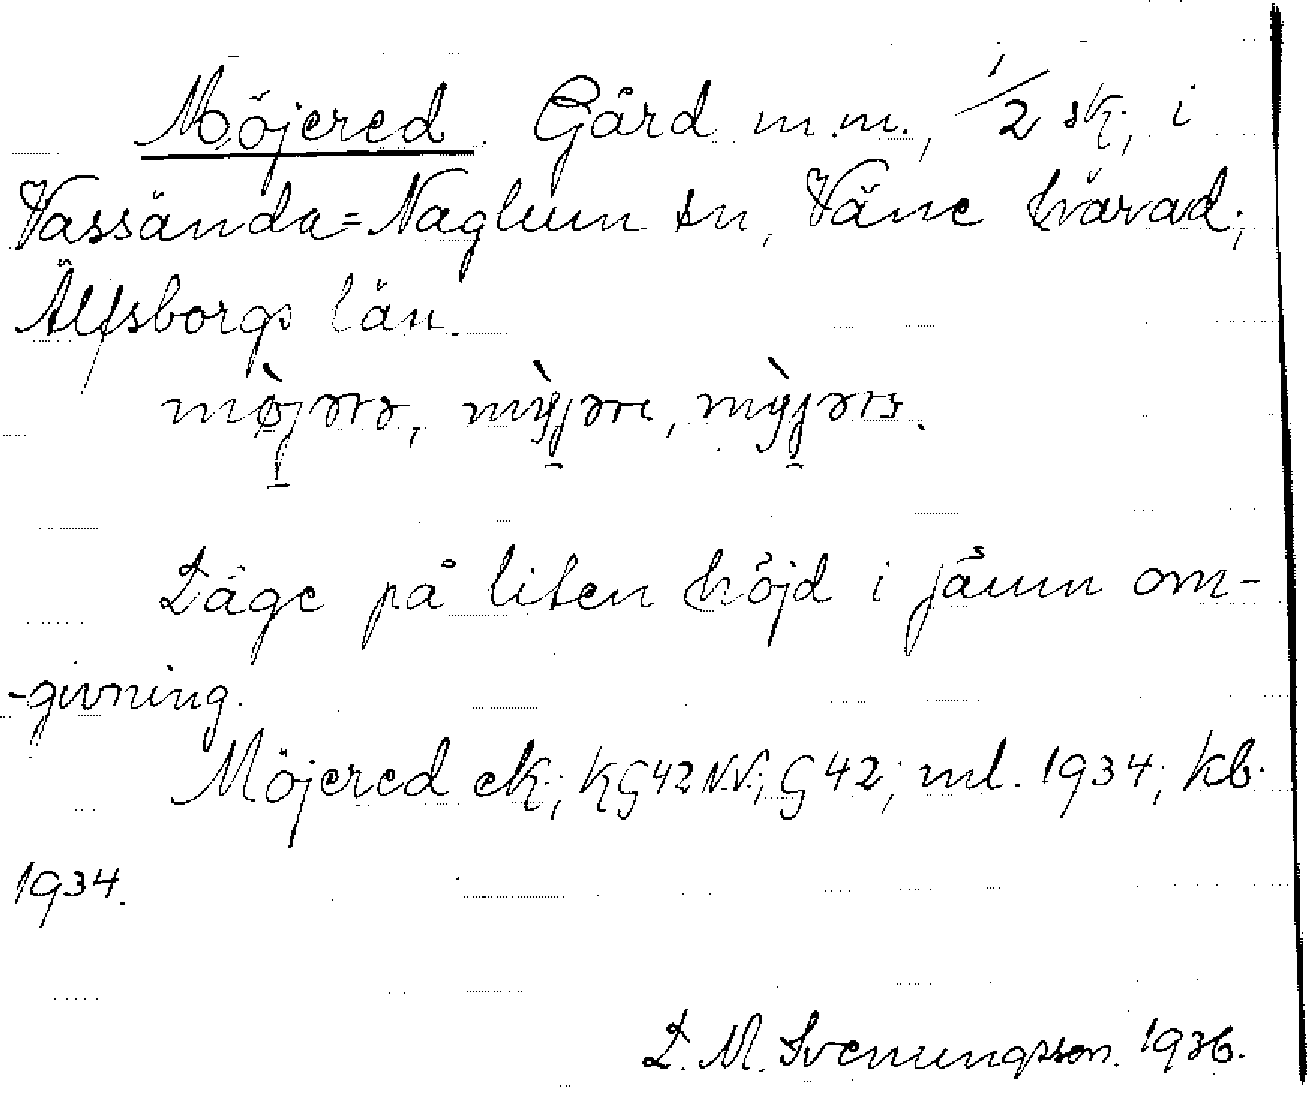 Möjered. Gård m.m., 1/2 sk., i
Vassända=Naglum sn, Väne härad,
Älfsborgs län.
Läge på liten höjd i jämn om-
-givning.
Möjered ek.; KG42NV; G42; ml. 1934; kb.
1934.
L. M. Svenungsson. 1936.